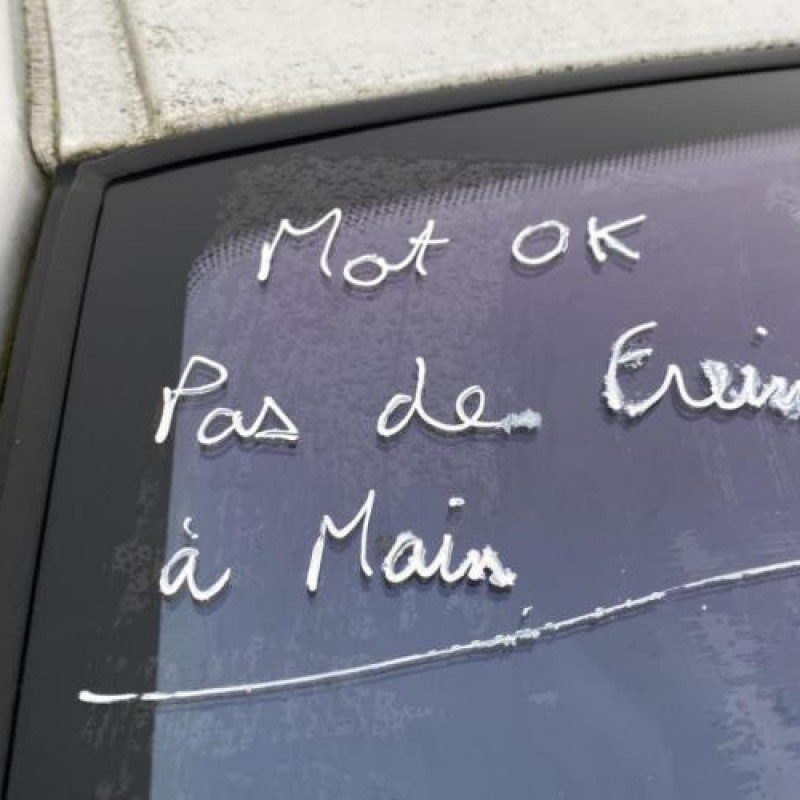 Mot OK
Pas de Frein
à Main